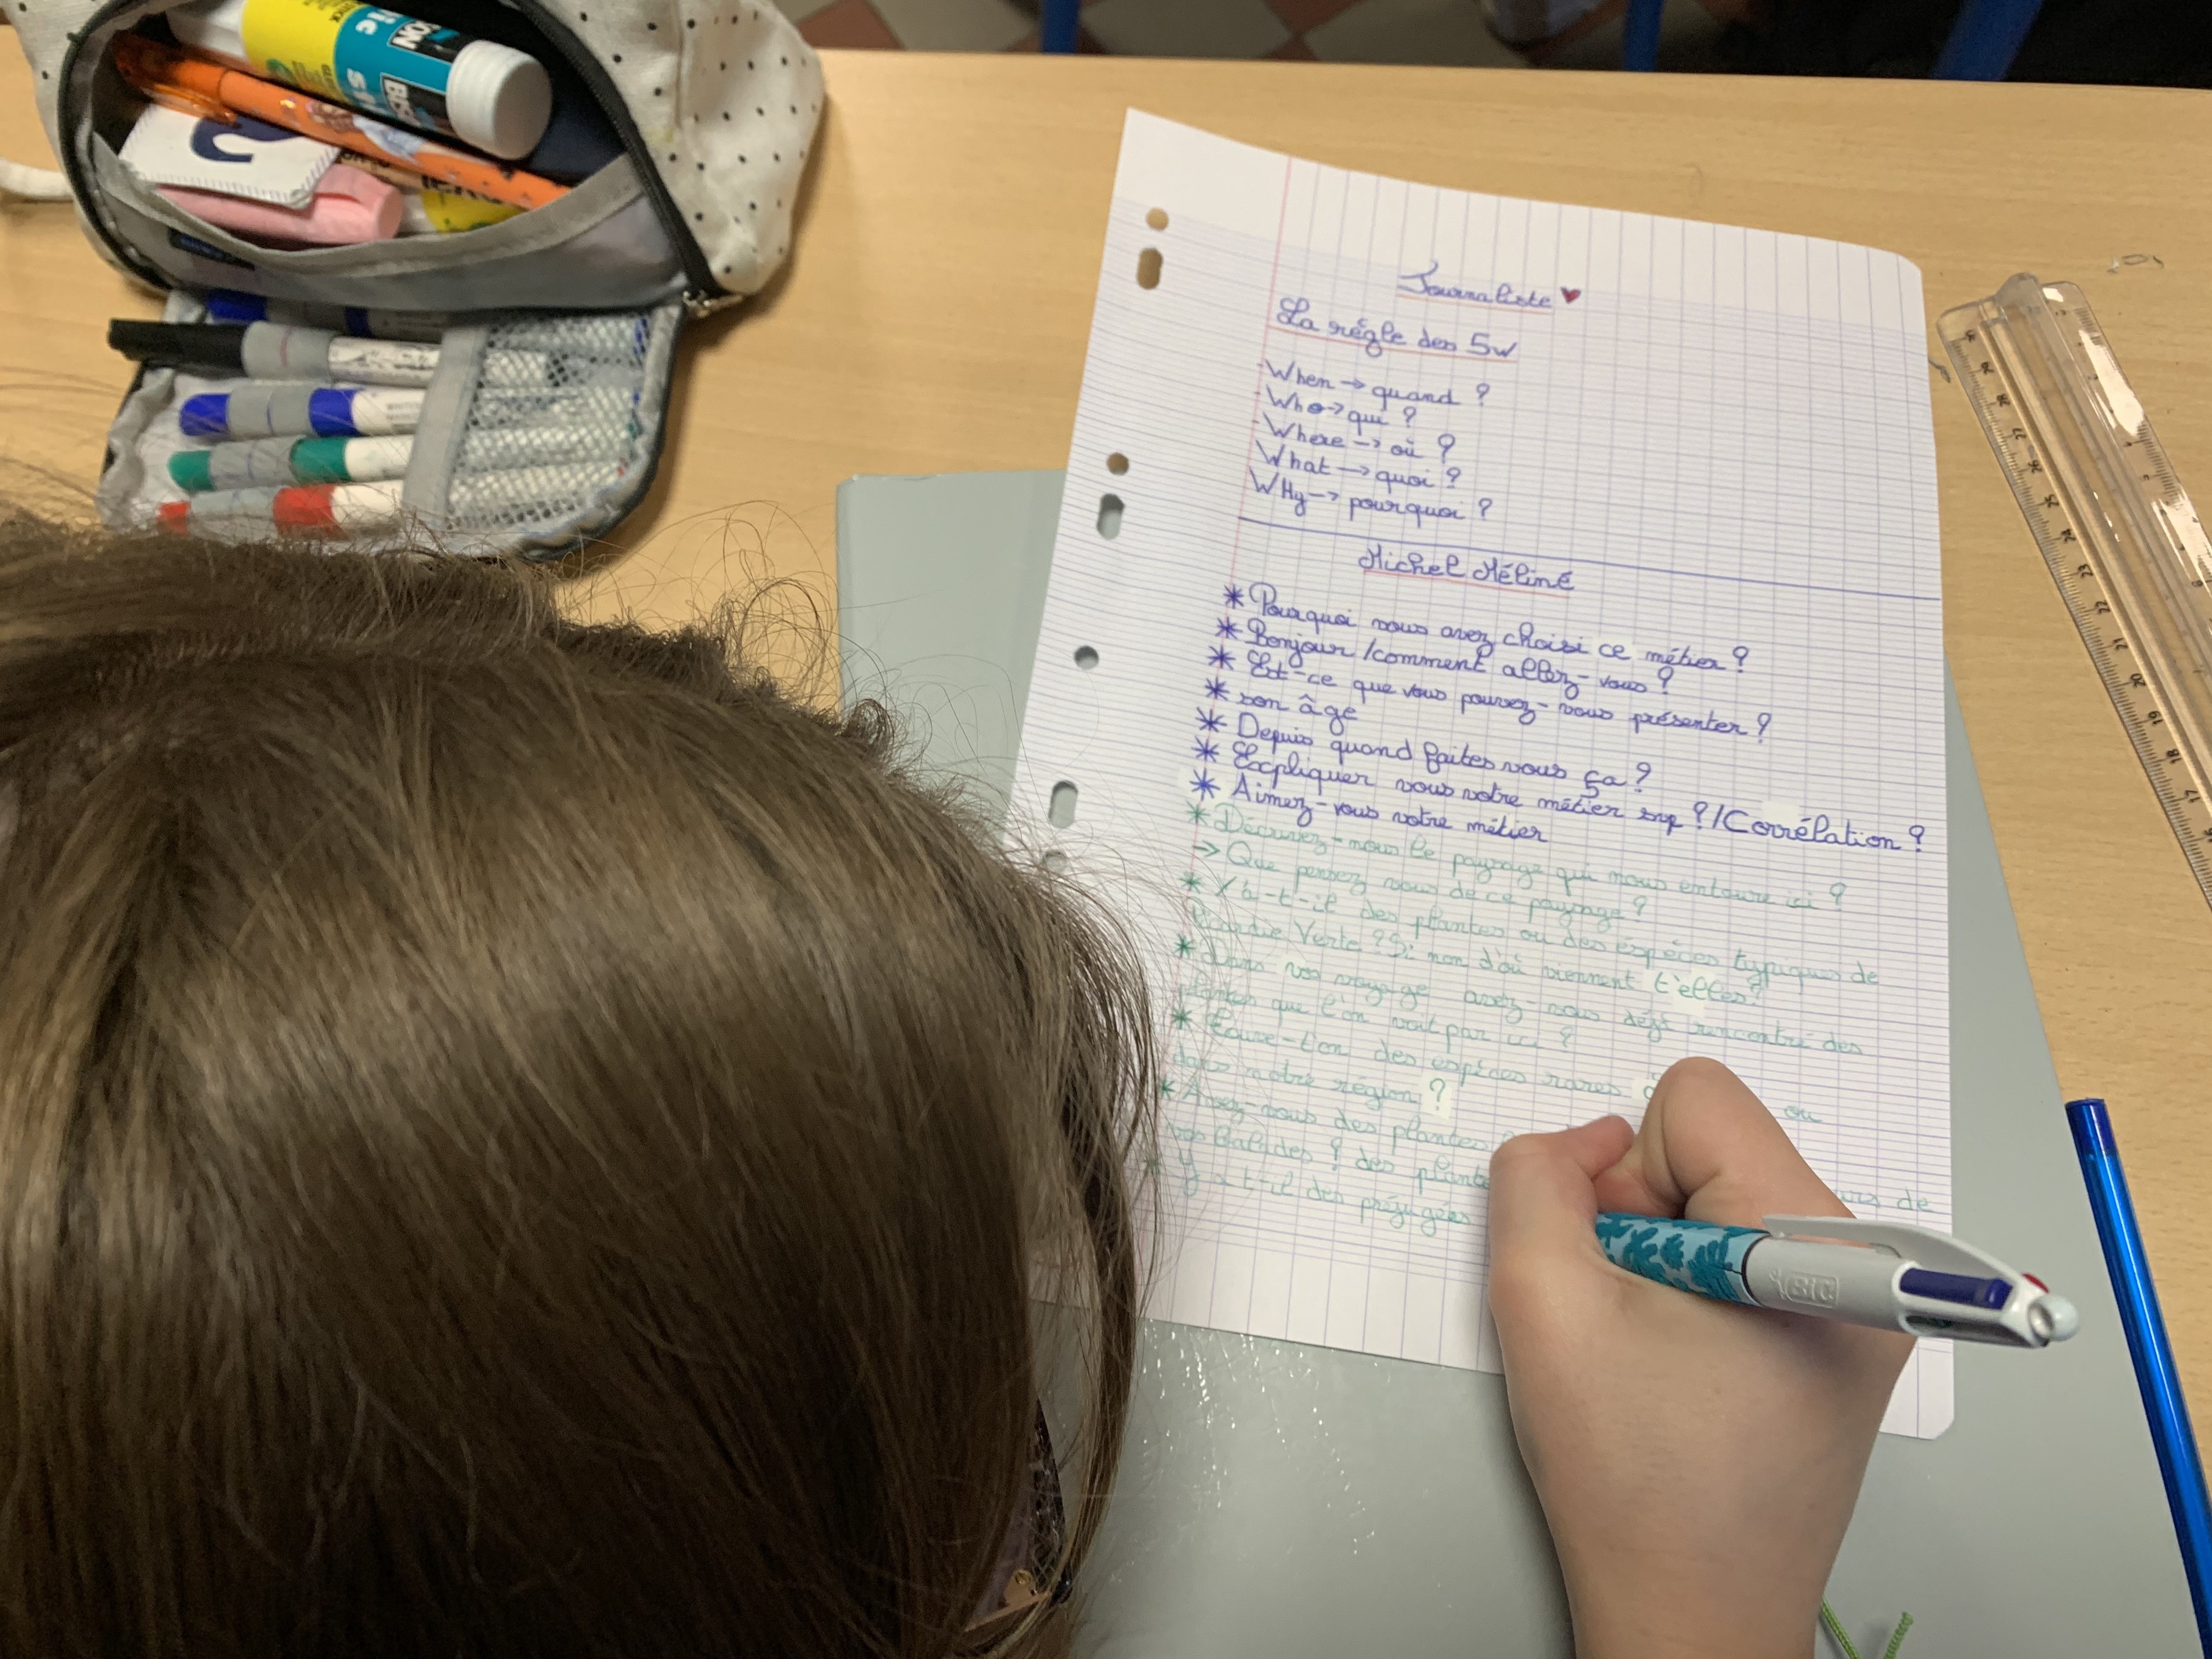 Journaliste
La régle des 5W
- When → quand ?
- Who → qui ?
- Where → où ?
What → quoi ?
WHy → pourquoi ?
Michel Méliné
* Pourquoi vous avez choisi ce métier ?
* Bonjour / comment allez-vous ?
* Est-ce que vous pouvez-vous présenter ?
* son âge
* Depuis quand faites vous ça ?
* Expliquer vous votre métier svp ? / Corrélation ?
* Aimez-vous votre métier
* Décrivez-nous le paysage qui nous entoure ici ?
→ Que pensez vous de ce paysage ?
* Y'a-t-il des plantes ou des éspéces typiques de
Picardie Verte ? Si non d'où viennent t'elles ?
* Dans vos voyage avez-vous déjà rencontré des
plantes que l'on voit par ici ?
* des espèces rares ou
dans notre région ?
* Avez-vous des plantes
vos balades ? des de
* Y a t-il des préjugées
BIC